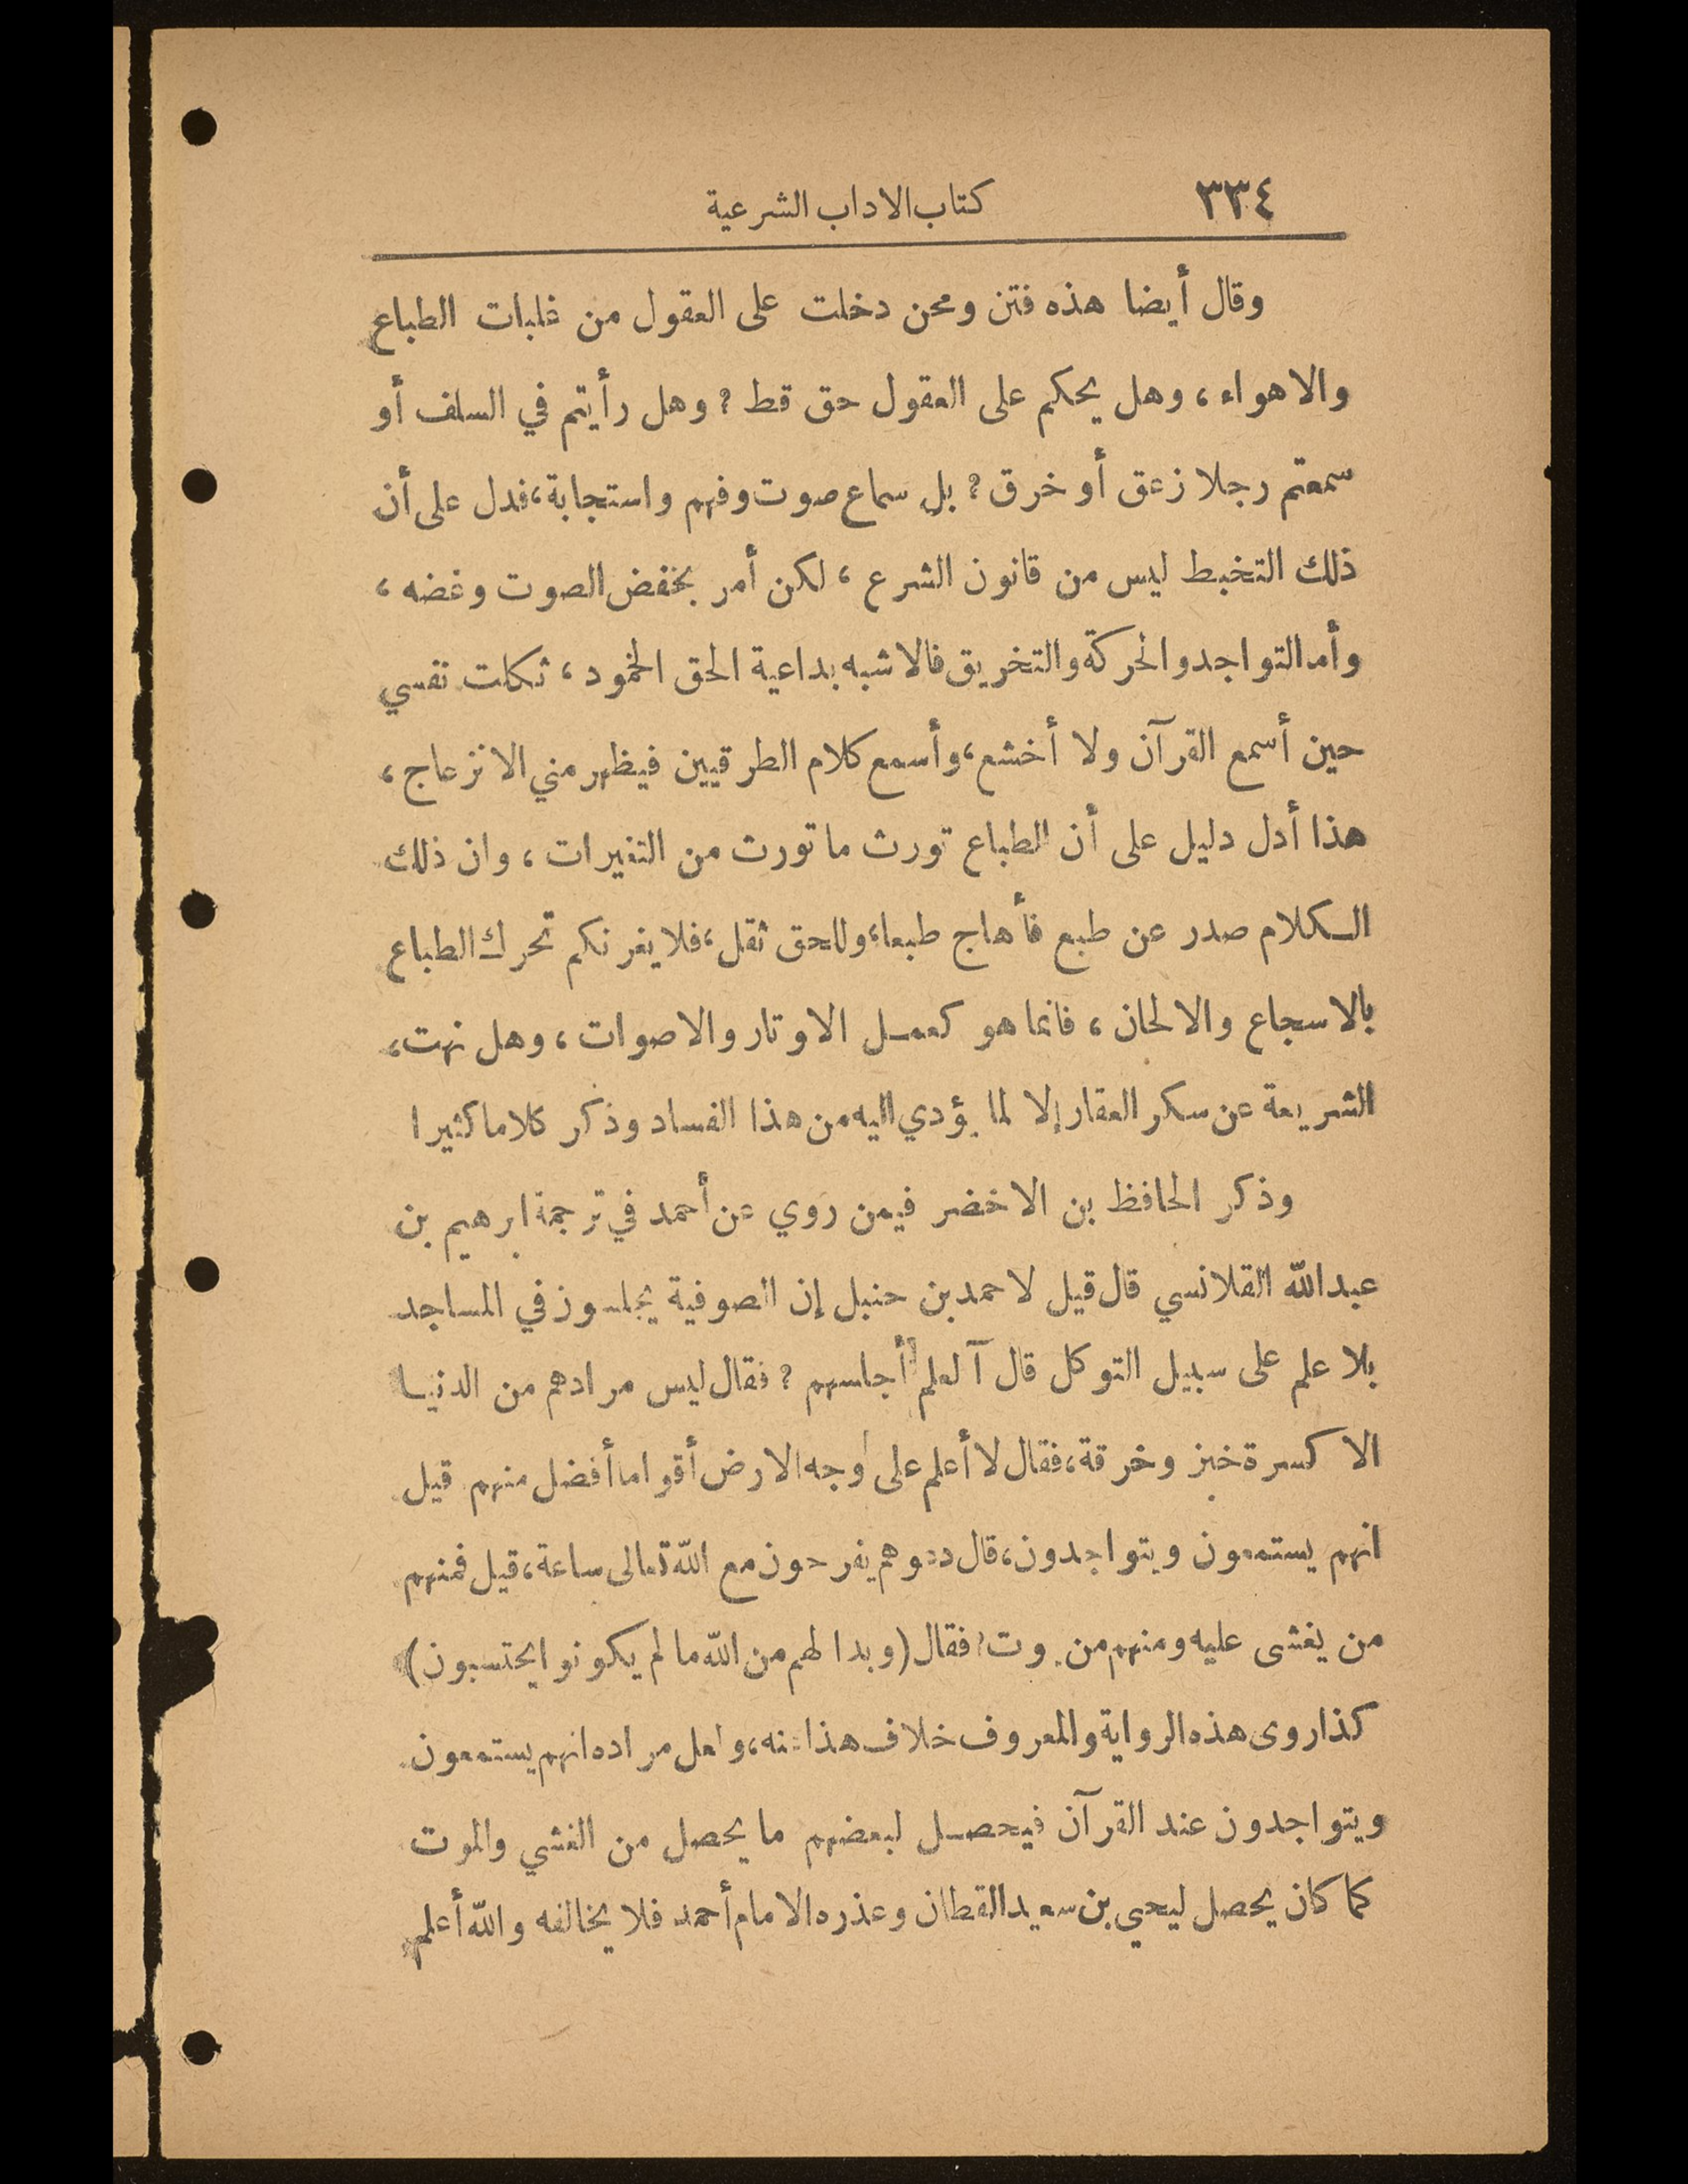 ٣٣٤
كتاب الاداب الشرعية
وقال أيضا هذه فتن ومحن دخلت على العقول من غلبات الطباع
والاهواء ، وهل يحكم على العقول حق قط ? وهل رأيتم في السلف أو
سمعتم رجلا زعق أو خرق ? بل سماع صوت وفهم واستجابة ، فدل على أن
ذلك التخبط ليس من قانون الشرع ، لكن أمر بخفض الصوت وغضه ،
وأما التواجد والحركة والتخريق فالاشبه بداعية الحق الخمود ، ثكلت نفسي
حين أسمع القرآن ولا أخشع ، وأسمع كلام الطرقيين فيظهر مني الانزعاج ،
هذا أدل دليل على أن الطباع تورث ما تورث من التغيرات ، وان ذلك
الكلام صدر عن طبع فأهاج طبعا ، وللحق ثقل ، فلا يغرنكم تحرك الطباع
بالاسجاع والالحان ، فانما هو كعمل الاوتار والاصوات ، وهل نهت
الشريعة عن سكر العقار إلا لما يؤدي اليه من هذا الفساد وذكر كلاما كثيرا
وذكر الحافظ بن الاخضر فيمن روي عن أحمد في ترجمة ابرهيم بن
عبد الله القلانسي قال قيل لاحمد بن حنبل إن الصوفية يجلسون في المساجد
بلا علم على سبيل التوكل قال آلعلم أجلسهم ? فقال ليس مرادهم من الدنيا
الا كسرة خبز وخرقة ، فقال لا أعلم على وجه الارض أقواما أفضل منهم قيل
انهم يستمعون ويتواجدون ، قال دعوهم يفرحون مع الله تعالى ساعة ، قيل فمنهم
من يغشى عليه ومنهم من يموت ? فقال ( وبدا لهم من الله ما لم يكونوا يحتسبون )
كذا روى هذه الرواية والمعروف خلاف هذا عنه ، ولعل مراده انهم يستمعون
ويتواجدون عند القرآن فيحصل لبعضهم ما يحصل من الغشي والموت
كما كان يحصل ليحي بن سعيد القطان وعذره الامام أحمد فلا يخالفه والله أعلم